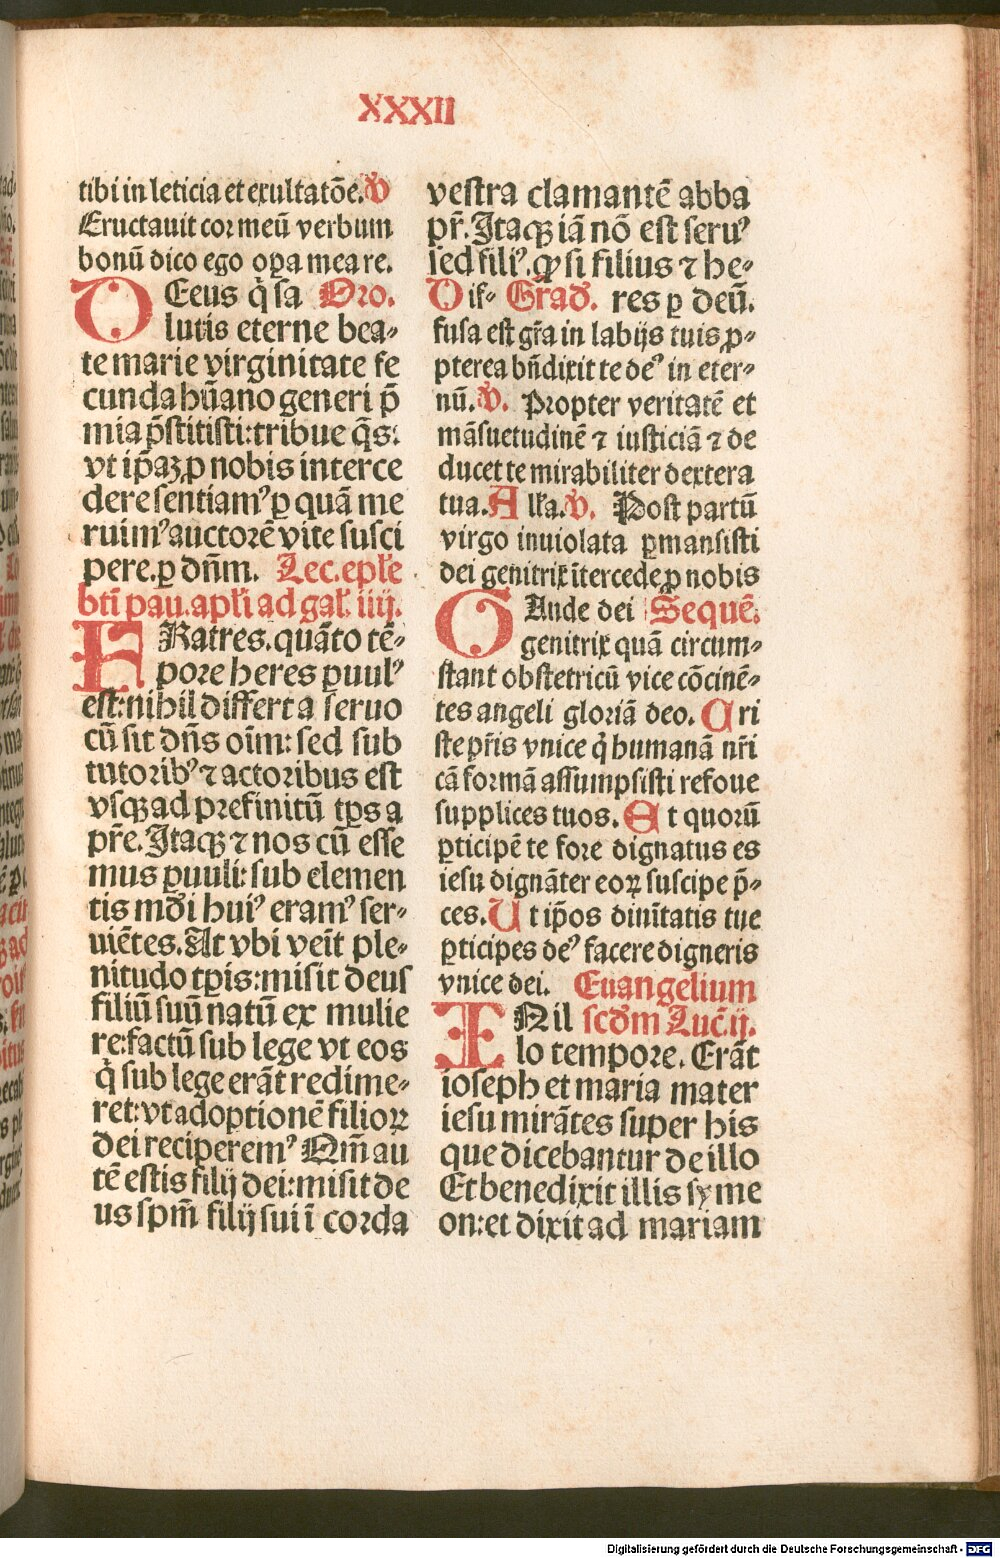 XXXII
tibi in leticia et exultatōe. V
Eructauit cor meū verbum
bonū dico ego oꝑa mea re.
DEus q̇ sa Oro.
lutis eterne bea⸗
te marie virginitate fe
cunda hūano generi p̄
mia p̄stitisti: tribue q̄s:
vt ip̄aꝫ ꝓ nobis interce
dere sentiamꝰ ꝑ quā me
ruimꝰ auctorē vite susci
pere. ꝑ dn̄m. Lec. epl̄e
bti̅ pau. apl̄i ad gal̄. iiij.
FRatres. quāto tē⸗
pore heres ꝑuulꝰ
est: nihil differt a seruo
cū sit dn̄s oīm: sed sub
tutoribꝰ ⁊ actoribus est
vsqꝫ ad prefinitū tp̄s a
pr̄e. Itaqꝫ ⁊ nos cū esse
mus ꝑuuli: sub elemen
tis mūdi huiꝰ eramꝰ ser⸗
uiētes. At vbi veīt ple⸗
nitudo tꝑis: misit deus
filiū suū natū ex mulie
re: factū sub lege vt eos
q̇ sub lege erāt redime⸗
ret: vt adoptionē filioꝝ
dei reciperemꝰ Qm̄ au
tē estis filij dei: misit de
us spm̄ filij sui ī corda
vestra clamantē abba
pr̄. Itaqꝫ iā nō est seruꝰ
sed filiꝰ. qꝫ si filius ⁊ he⸗
Dif⸗ Grad̄. res ꝑ deū.
fusa est gr̄a in labijs tuis ꝓ⸗
pterea bn̄dixit te deꝰ in eter⸗
nū. V. Propter veritatē et
māsuetudinē ⁊ iusticiā ⁊ de
ducet te mirabiliter dextera
tua. All̄a. V. Post partū
virgo inuiolata ꝑmansisti
dei genitrix ītercede ꝓ nobis
GAude dei Sequē.
genitrix quā circum⸗
stant obstetricū vice cōcinē⸗
tes angeli gloriā deo. Cri
ste pr̄is vnice q̇ humanā nr̄i
cā formā assumpsisti refoue
supplices tuos. Et quorū
ꝑticipē te fore dignatus es
iesu dignāter eoꝝ suscipe p̄⸗
ces. Ut ip̄os diuītatis tue
ꝑticipes deꝰ facere digneris
vnice dei. Euangelium
INil scd̄m Luc̄. ij.
lo tempore. Erāt
ioseph et maria mater
iesu mirātes super his
que dicebantur de illo
Et benedixit illis syme
on: et dixit ad mariam
Digitalisierung gefördert durch die Deutsche Forschungsgemeinschaft - DFG